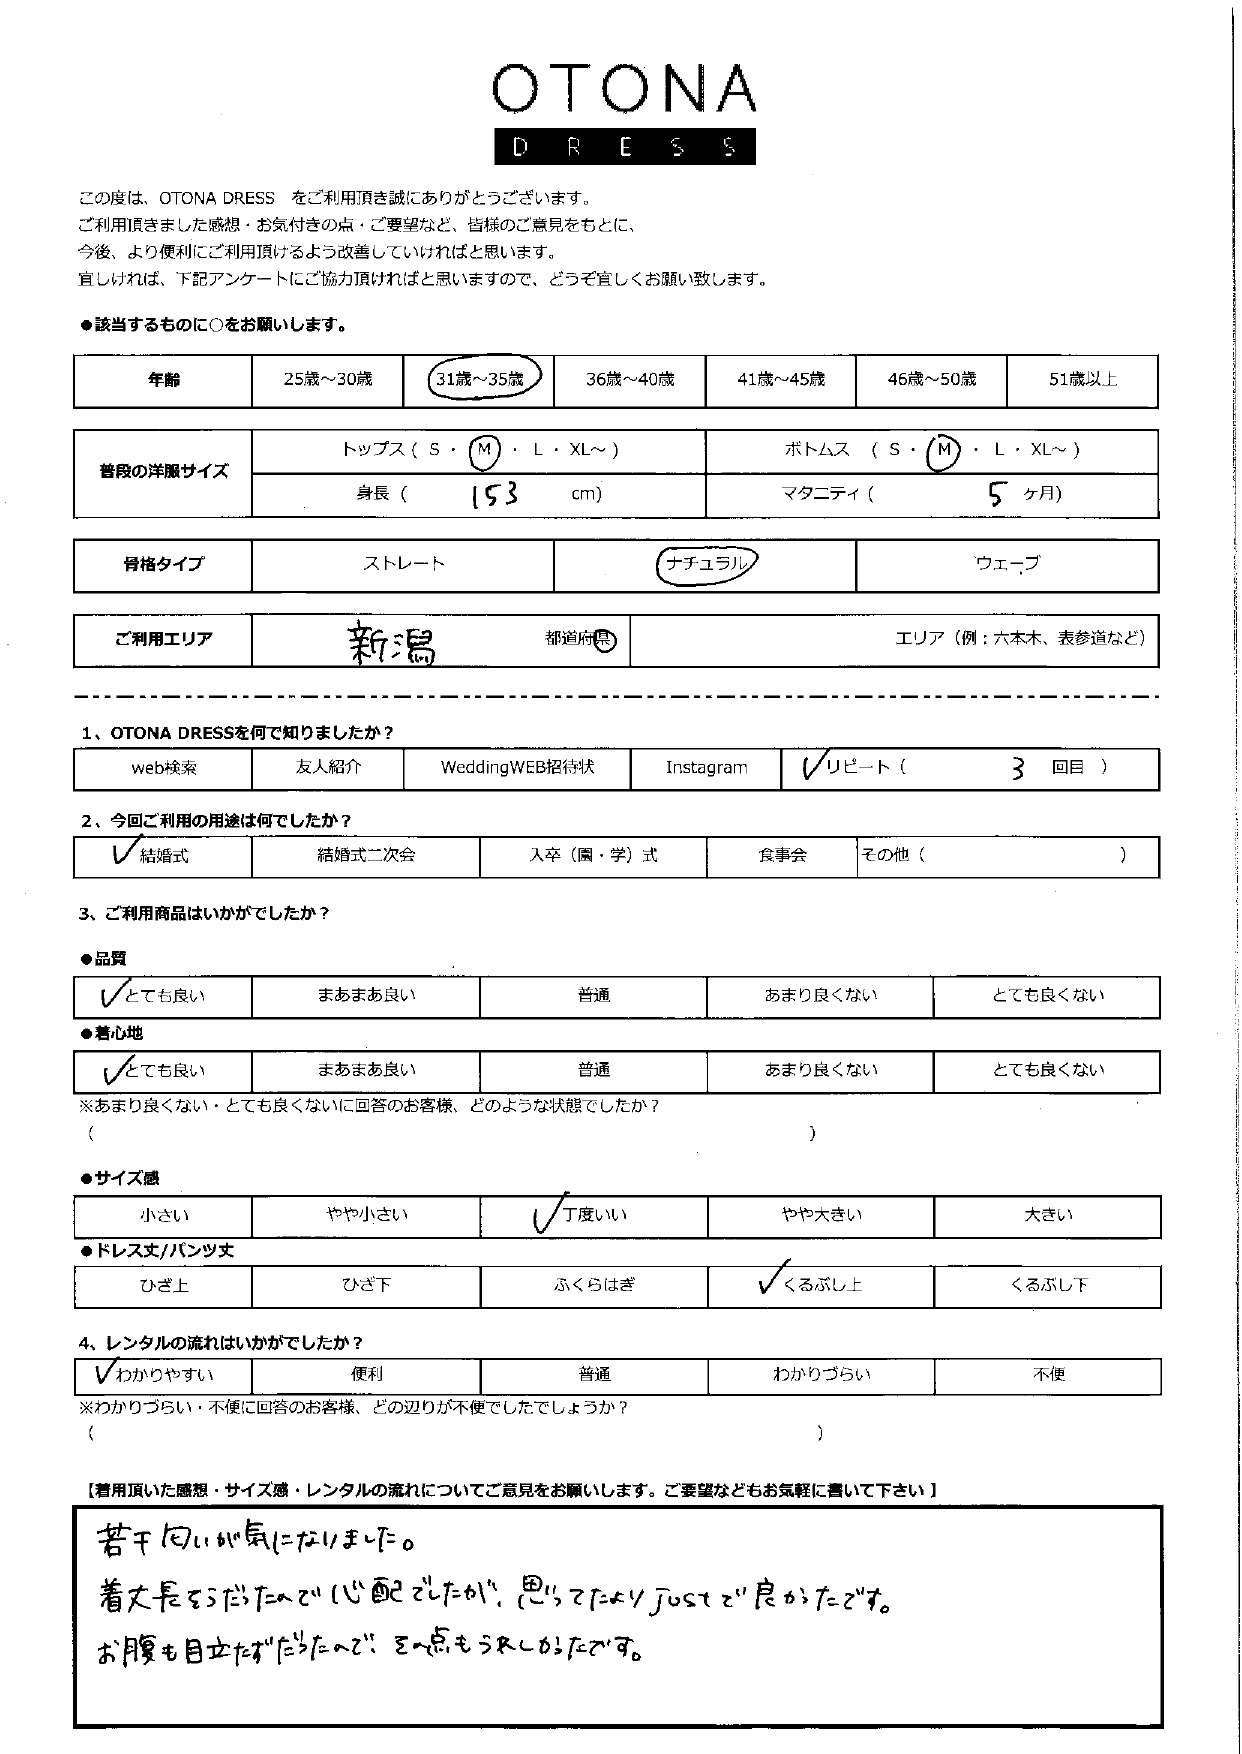 OTONA
DRESS
この度は、OTONA DRESS をご利用頂き誠にありがとうございます。
ご利用頂きました感想・お気付きの点・ご要望など、皆様のご意見をもとに、
今後、より便利にご利用頂けるよう改善していければと思います。
宜しければ、下記アンケートにご協力頂ければと思いますので、どうぞ宜しくお願い致します。
●該当するものに○をお願いします。
年齢 25歳～30歳 31歳～35歳 36歳～40歳 41歳～45歳 46歳～50歳 51歳以上
普段の洋服サイズ トップス ( S ・ M ・ L ・ XL～ ) ボトムス ( S ・ M ・ L ・ XL～ )
身長 ( 153 cm) マタニティ ( 5 ヶ月)
骨格タイプ ストレート ナチュラル ウェーブ
ご利用エリア 新潟 都道府県 エリア（例：六本木、表参道など）
1、OTONA DRESSを何で知りましたか？
web検索 友人紹介 WeddingWEB招待状 Instagram ✓リピート ( 3 回目 )
2、今回ご利用の用途は何でしたか？
✓結婚式 結婚式二次会 入卒（園・学）式 食事会 その他 ( )
3、ご利用商品はいかがでしたか？
●品質
✓とても良い まあまあ良い 普通 あまり良くない とても良くない
●着心地
✓とても良い まあまあ良い 普通 あまり良くない とても良くない
※あまり良くない・とても良くないに回答のお客様、どのような状態でしたか？
( )
●サイズ感
小さい やや小さい ✓丁度いい やや大きい 大きい
●ドレス丈/パンツ丈
ひざ上 ひざ下 ふくらはぎ ✓くるぶし上 くるぶし下
4、レンタルの流れはいかがでしたか？
✓わかりやすい 便利 普通 わかりづらい 不便
※わかりづらい・不便に回答のお客様、どの辺りが不便でしたでしょうか？
( )
【着用頂いた感想・サイズ感・レンタルの流れについてご意見をお願いします。ご要望などもお気軽に書いて下さい】
若干匂いが気になりました。
着丈長そうだったので心配でしたが、思ってたよりjustで良かったです。
お腹も目立たずだったので、その点もうれしかったです。